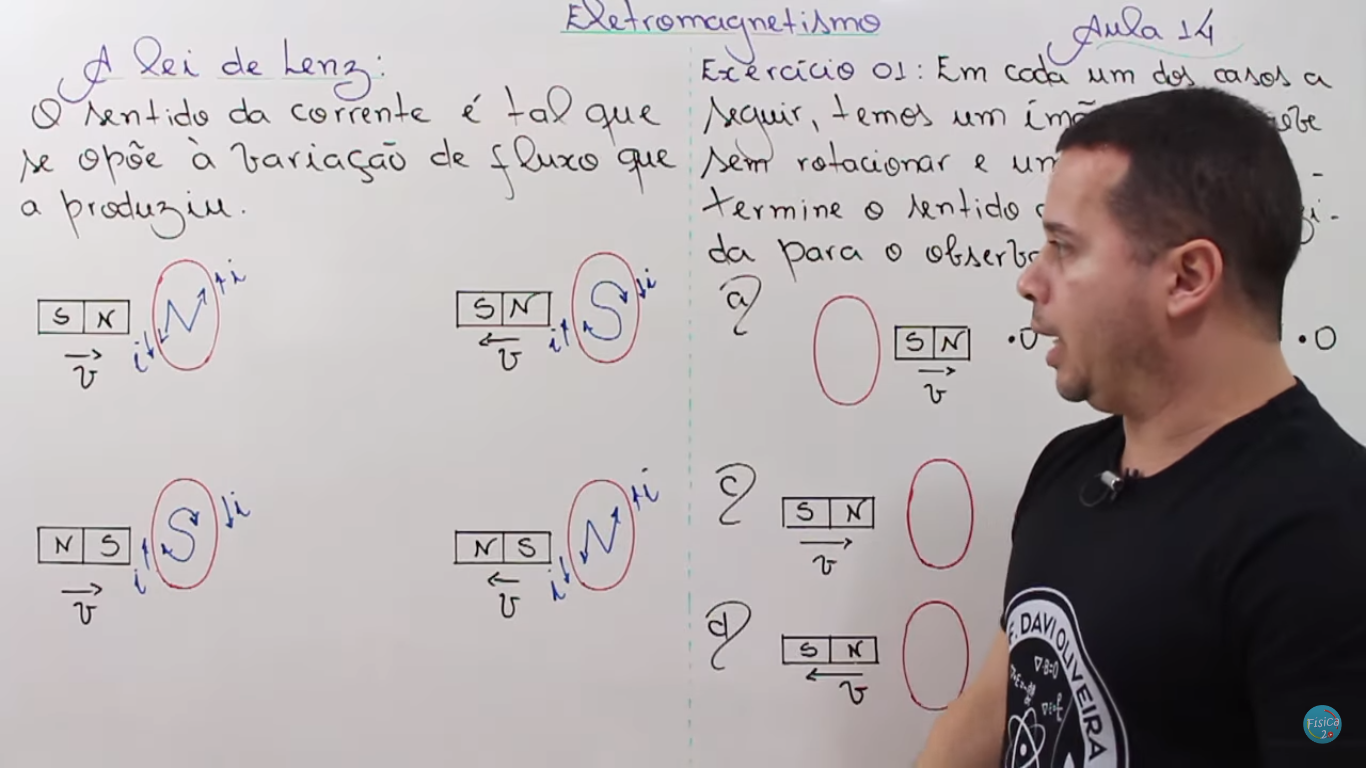 Eletromagnetismo
Aula 14
A lei de Lenz:
O sentido da corrente é tal que
se opõe à variação de fluxo que
a produziu.
S N
v
N
i
i
S N
v
S
i
i
N S
v
S
i
i
N S
v
N
i
i
Exercício 01: Em cada um dos casos a
seguir, temos um
sem rotacionar e
termine o sentido
da para o
a)
S N
v
•O
c)
S N
v
d)
S N
v
DAVI OLIVEIRA
∇·B=0
Física
2.0